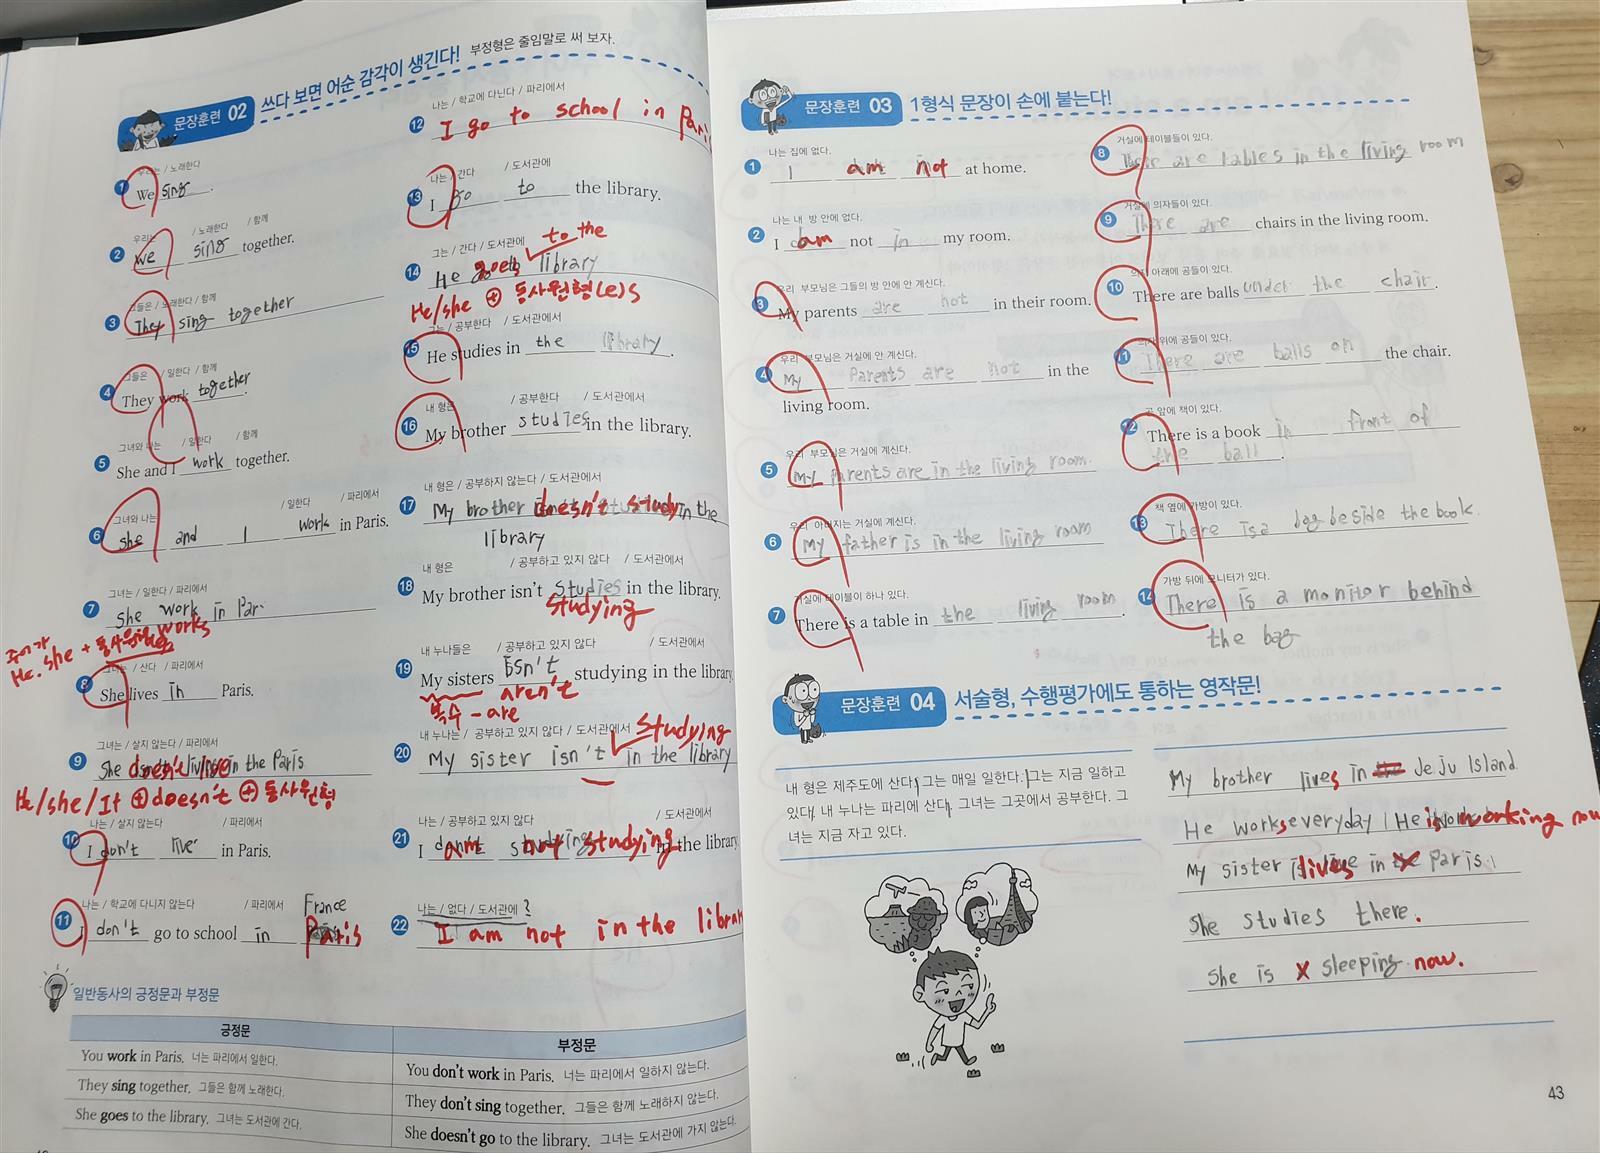 문장훈련 02 쓰다 보면 어순 감각이 생긴다! 부정형은 줄임말로 써 보자.
우리는 / 노래한다
1 We sing.
우리는 / 노래한다 / 함께
2 We sing together.
그들은 / 노래한다 / 함께
3 They sing together
그들은 / 일한다 / 함께
4 They work together.
그녀와 나는 / 일한다 / 함께
5 She and I work together.
그녀와 나는 / 일한다 / 파리에서
6 she and I work in Paris.
그녀는 / 일한다 / 파리에서
7 she work in Par
works
주어가
He. she + 동사원형
그녀는 / 산다 / 파리에서
8 She lives in Paris.
그녀는 / 살지 않는다 / 파리에서
9 She doesn't live in the Paris
He/she/It + doesn't + 동사원형
나는 / 살지 않는다 / 파리에서
10 I don't live in Paris.
나는 / 학교에 다니지 않는다 / 파리에서
France
11 I don't go to school in Paris
나는 / 학교에 다닌다 / 파리에서
12 I go to school in Pari
나는 / 간다 / 도서관에
13 I go to the library.
그는 / 간다 / 도서관에
to the
14 He goes library
He/she + 동사원형(e)s
그는 / 공부한다 / 도서관에서
15 He studies in the library.
내 형은 / 공부한다 / 도서관에서
16 My brother studies in the library.
내 형은 / 공부하지 않는다 / 도서관에서
17 My brother doesn't study in the
library
내 형은 / 공부하고 있지 않다 / 도서관에서
18 My brother isn't studies in the library.
studying
내 누나들은 / 공부하고 있지 않다 / 도서관에서
19 My sisters isn't studying in the library.
aren't
복수 - are
내 누나는 / 공부하고 있지 않다 / 도서관에서
studying
20 My sister isn't in the library
나는 / 공부하고 있지 않다 / 도서관에서
21 I am not studying in the library.
나는 / 없다 / 도서관에 ?
22 I am not in the librar
일반동사의 긍정문과 부정문
긍정문 부정문
You work in Paris. 너는 파리에서 일한다. You don't work in Paris. 너는 파리에서 일하지 않는다.
They sing together. 그들은 함께 노래한다. They don't sing together. 그들은 함께 노래하지 않는다.
She goes to the library. 그녀는 도서관에 간다. She doesn't go to the library. 그녀는 도서관에 가지 않는다.
문장훈련 03 1형식 문장이 손에 붙는다!
나는 집에 없다.
1 I am not at home.
나는 내 방 안에 없다.
2 I am not in my room.
우리 부모님은 그들의 방 안에 안 계신다.
3 My parents are not in their room.
우리 부모님은 거실에 안 계신다.
4 My parents are not in the
living room.
우리 부모님은 거실에 계신다.
5 My parents are in the living room.
우리 아버지는 거실에 계신다.
6 My father is in the living room
거실에 테이블이 하나 있다.
7 There is a table in the living room.
거실에 테이블들이 있다.
8 There are tables in the living room
거실에 의자들이 있다.
9 There are chairs in the living room.
의자 아래에 공들이 있다.
10 There are balls under the chair.
의자 위에 공들이 있다.
11 There are balls on the chair.
공 앞에 책이 있다.
12 There is a book in front of
the ball.
책 옆에 가방이 있다.
13 There is a bag beside the book.
가방 뒤에 모니터가 있다.
14 There is a monitor behind
the bag
문장훈련 04 서술형, 수행평가에도 통하는 영작문!
내 형은 제주도에 산다. 그는 매일 일한다. 그는 지금 일하고
있다. 내 누나는 파리에 산다. 그녀는 그곳에서 공부한다. 그
녀는 지금 자고 있다.
My brother lives in the Jeju Island.
He works everyday He is working now
My sister lives in Paris.
She studies there.
she is sleeping now.
43